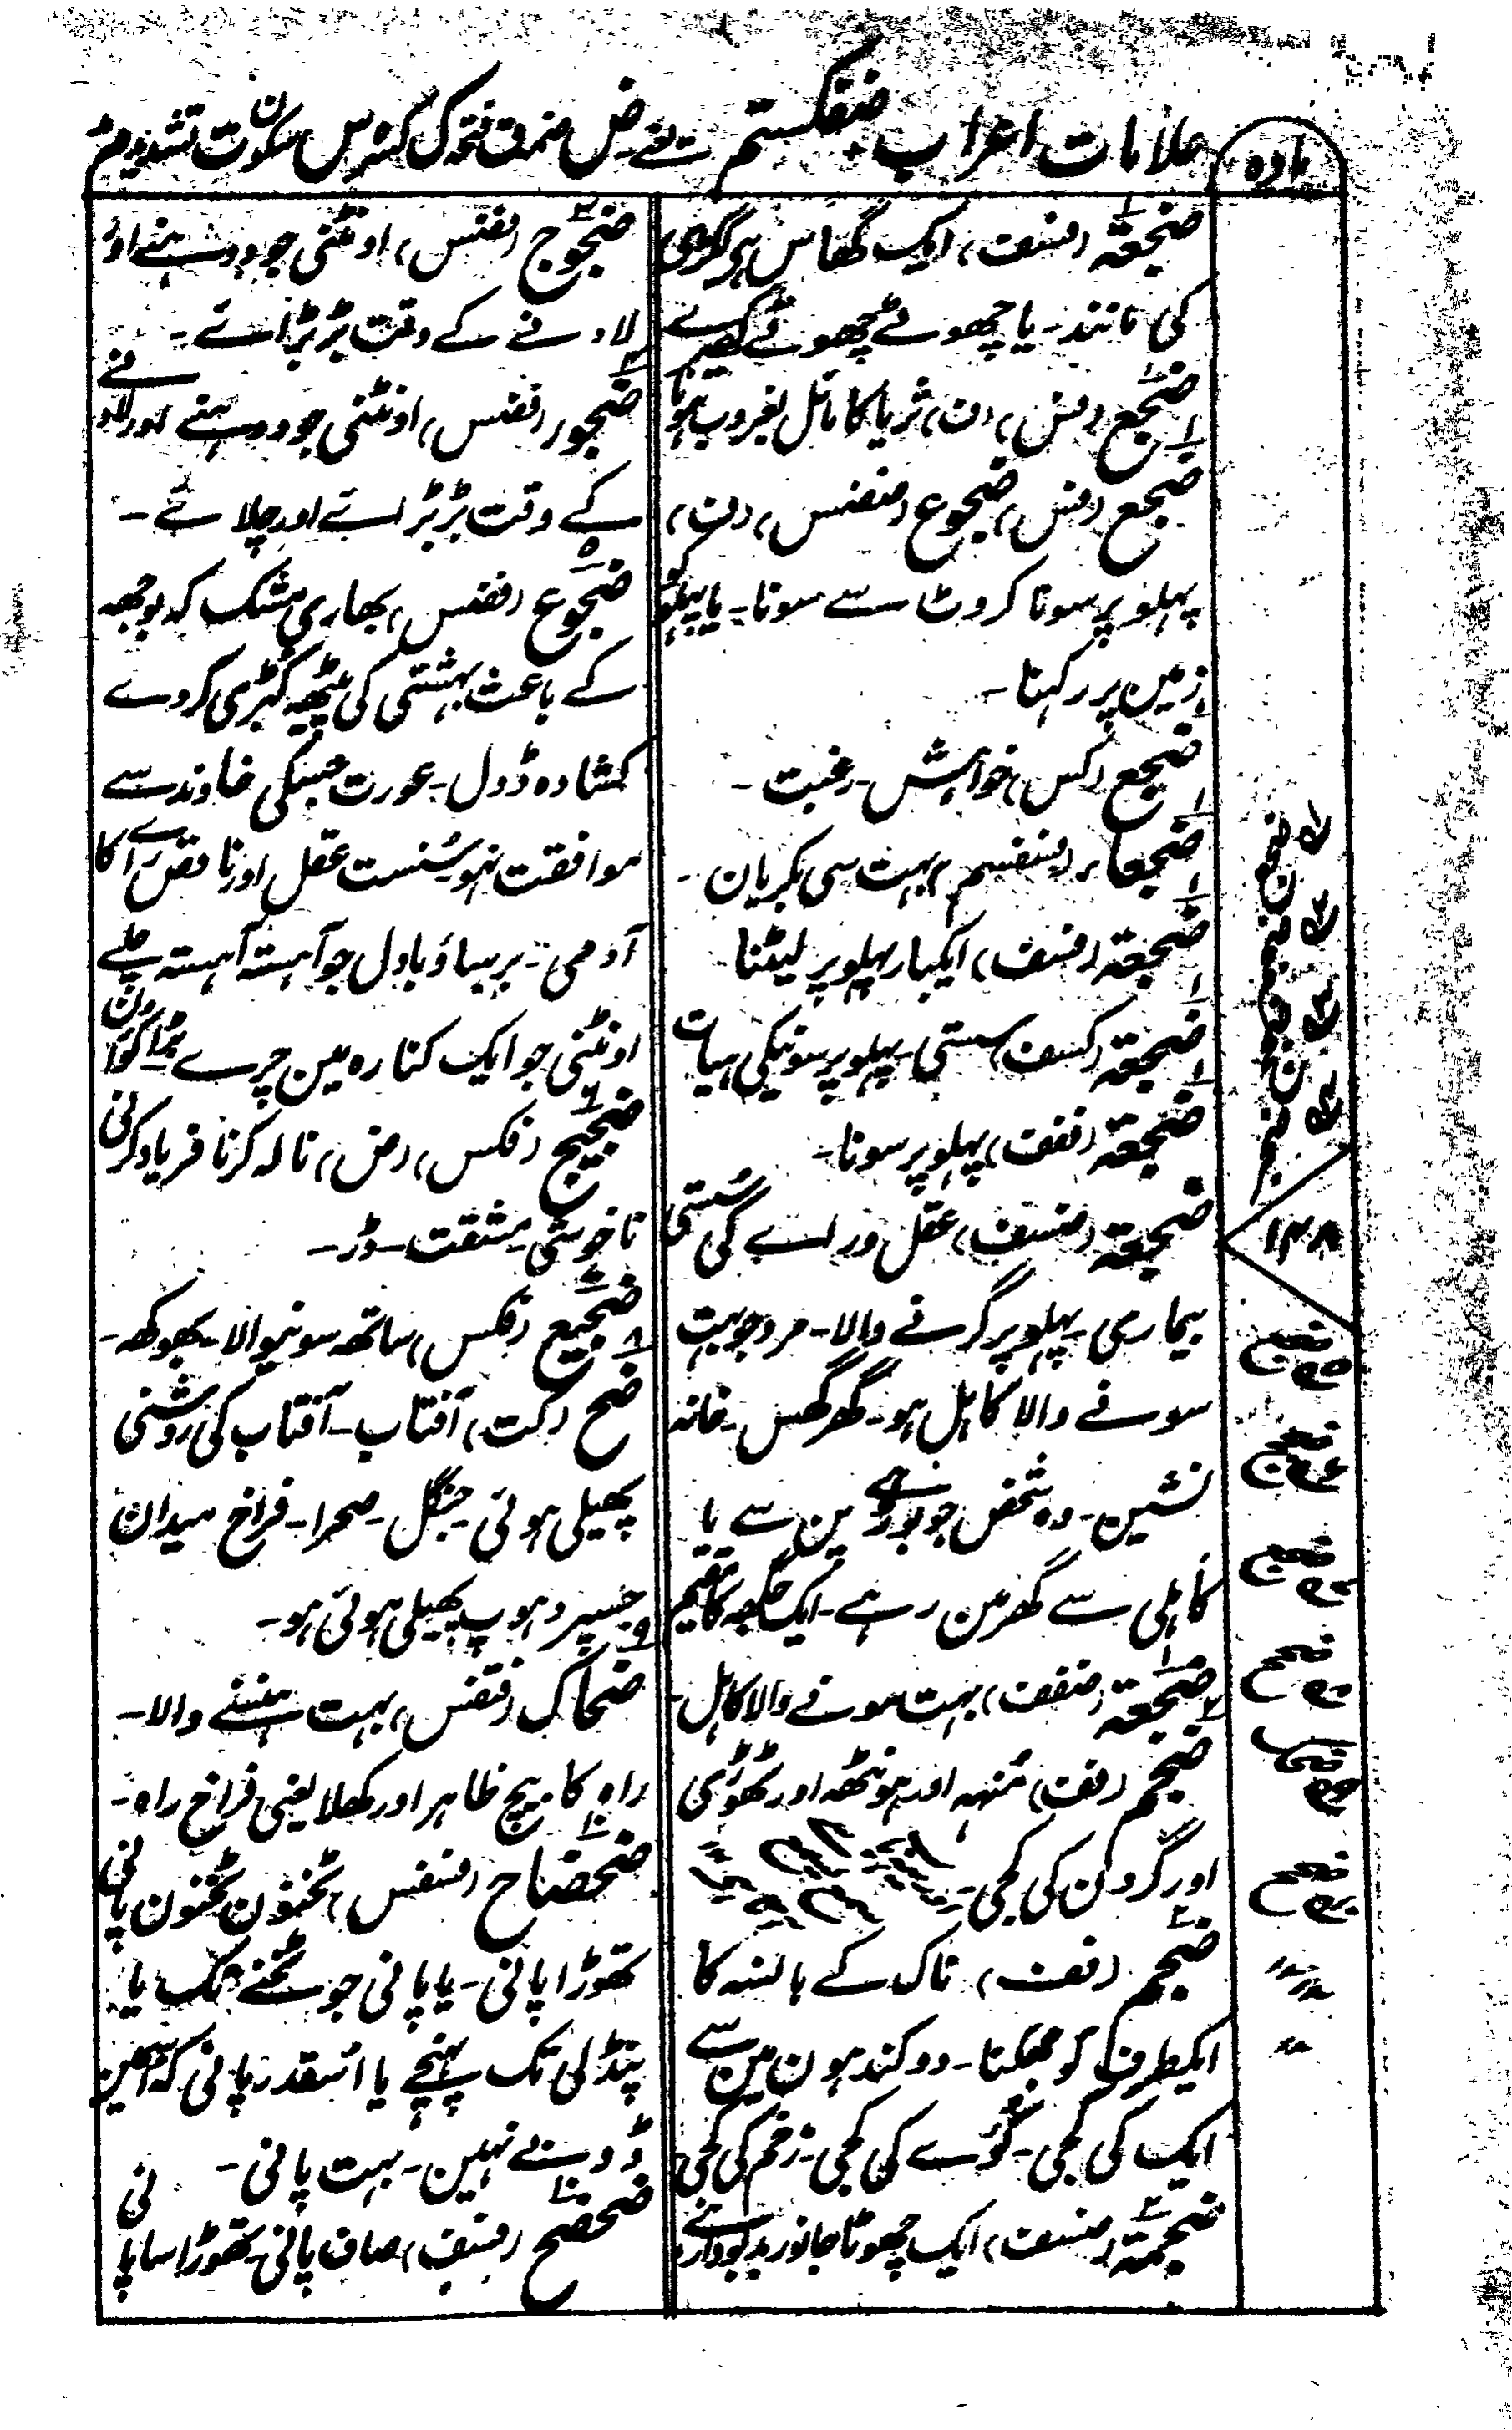 مادہ
علامات اعراب ضفکستم یعنے ض ضمہ ف فتحہ ک کسرہ س سکون ت تشدید م مد
ضجعۃ (فسف) ایک گھاس ہے ککڑی
کی مانند۔ یا چھوٹے چھوٹے کھیرے
ضجع (فس) (ن) ثریا کا مائل بغروب ہونا
ضجع (فس) ضجوع (ضضس) (ف)
پہلو پر سونا کروٹ سے سونا۔ یا پہلو کو
زمین پر رکہنا۔
ضجع (کس) خواہش۔ رغبت۔
ضجعاء (فسفسم) بہت سی بکریان۔
ضجعۃ (فسف) ایکبار پہلو پر لیٹنا
ضجعۃ (کسف) سستی۔ پہلو پر سونیکی ہیات
ضجعۃ (ففف) پہلو پر سونا۔
ضجعۃ (ضسف) عقل و راے کی سُستی
بیماری۔ پہلو پر گرنے والا۔ مرد جو بہت
سونے والا کاہل ہو۔ گھر گھس۔ خانہ
نشین۔ وہ شخص جو پن سے یا
کاہلی سے گھر مین رہے۔ ایک جگہ کا مقیم
ضجعۃ (ضفف) بہت سونے والا کاہل۔
ضجم (فف) مُنہہ اور ہونٹھہ اور ٹھوڑی
اور گردن کی کجی۔
ضجم (فف) ناک کے بانسہ کا
ایکطرف کو جھکنا۔ دو کندہون مین سے
ایک کی کجی۔ کی کجی۔ زخم کی کجی
ضجمۃ (ضسف) ایک چھوٹا جانور بدبودار
ضجوج (فضس) اونٹنی جو دوہنے اور
لادنے کے وقت بڑبڑائے۔
ضجور (فضس) اونٹنی جو دوہنے اور لادنے
کے وقت بڑبڑائے اور چلائے۔
ضجوع (فضس) بھاری مشک کہ بوجھہ
کے باعث بہشتی کی پیٹھہ کبڑی کردے
کشادہ ڈول۔ عورت جسکی خاوند سے
موافقت نہو۔ سُست عقل اور ناقص راے کا
آدمی۔ برساؤ بادل جو آہستہ آہستہ چلے
اونٹنی جو ایک کنارہ مین چرے۔ بڑا کنوان
ضجیج (فکس) (ض) نالہ کرنا فریاد کرنی
ناخوشی۔ مشقت۔ ڈر۔
ضجیع (فکس) ساتھہ سونیوالا۔ بھوکھہ۔
ضح (کت) آفتاب۔ آفتاب کی روشنی
پھیلی ہوئی۔ جنگل۔ صحرا۔ فراخ میدان
جسپر دہوپ پھیلی ہوئی ہو۔
ضحاک (فتفس) بہت ہنسنے والا۔
راہ کا بیچ ظاہر اور کھلا یعنی فراخ راہ۔
ضحضاح (فسفس) ٹخنون ٹخنون پانی
تھوڑا پانی۔ یا پانی جو ٹخنے تک یا
پنڈلی تک پہنچے یا اسقدر پانی کہ اسمین
ڈوبے نہین۔ بہت پانی۔
ضحضح (فسف) صاف پانی۔ تھوڑا سا پانی